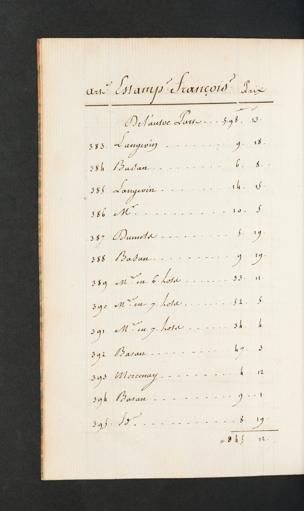 art.s Estamp.s françois Prix
De l'autre Part 598. 13.
383. Langevin 9. 18.
384 Basan 6. 8.
385 Langevin 14. 15.
386 M. 10. 5
387 5. 19.
388 Basan 9 19.
389 M. in 6. hosa 33. 11.
390 M. in 7 hosa 52. 5
391 M. in 7. hosa 34. 6
392 Basan 47. 3
393 4 12
394 Basan 9. 1
395. Id. 8 19
845 12